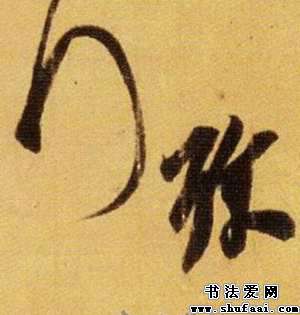 弥
书法爱网
www.shufaai.com